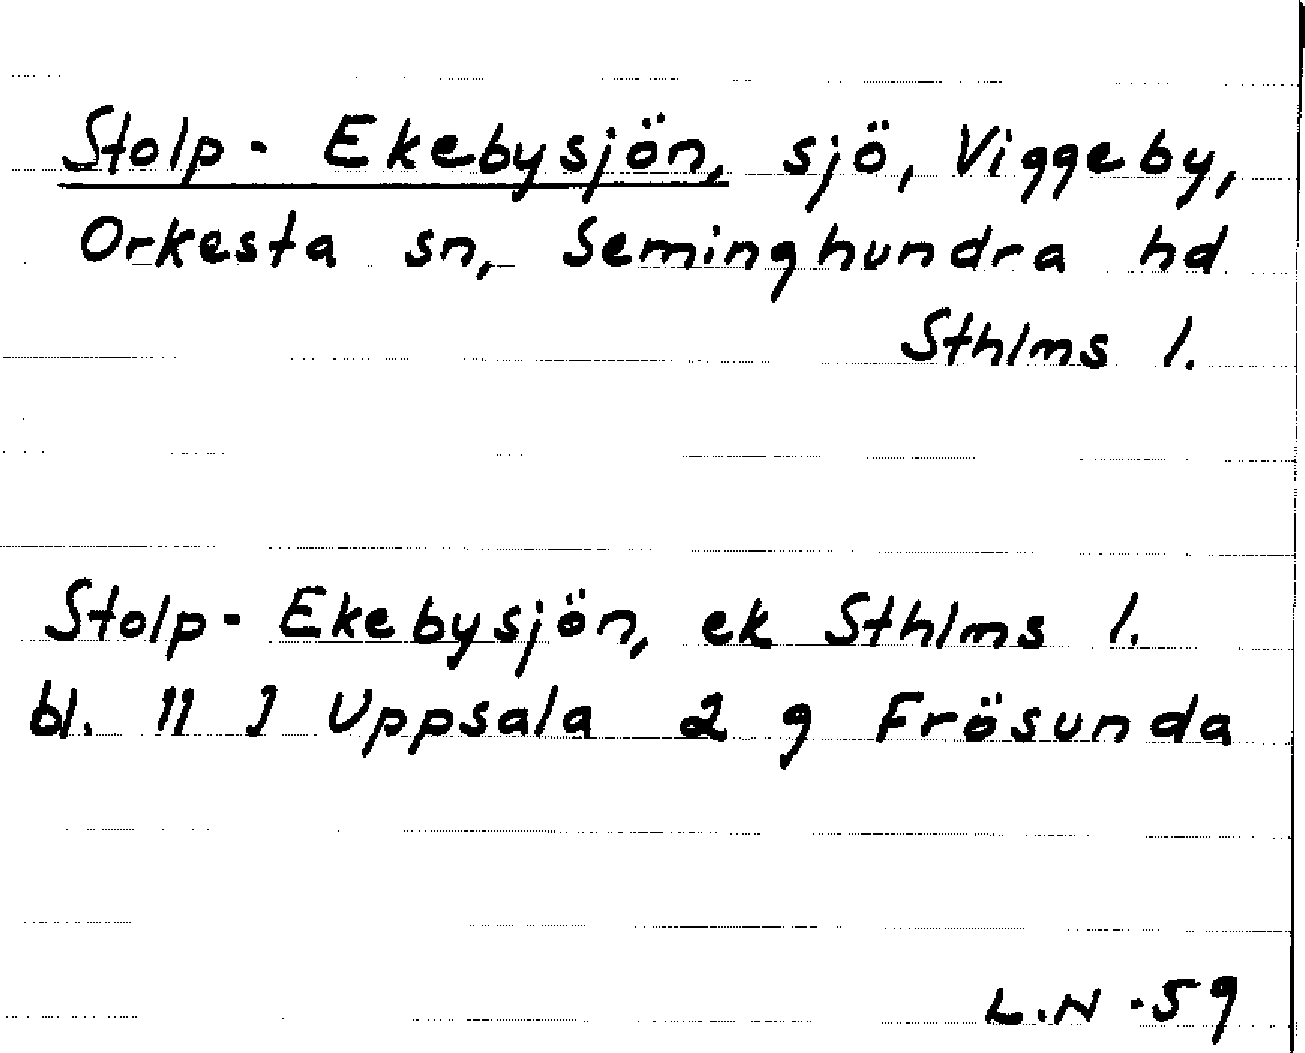 Stolp- Ekebysjön, sjö, Viggeby,
Orkesta sn, Seminghundra hd
Sthlms l.
Stolp- Ekebysjön, ek Sthlms l.
bl. 11 J Uppsala 2 g Frösunda
L.N -59